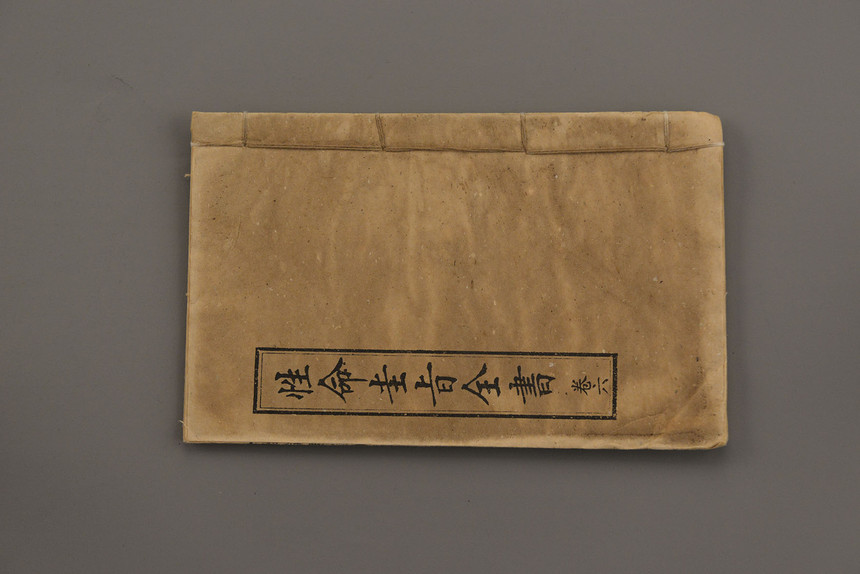 性命圭旨全書 卷六